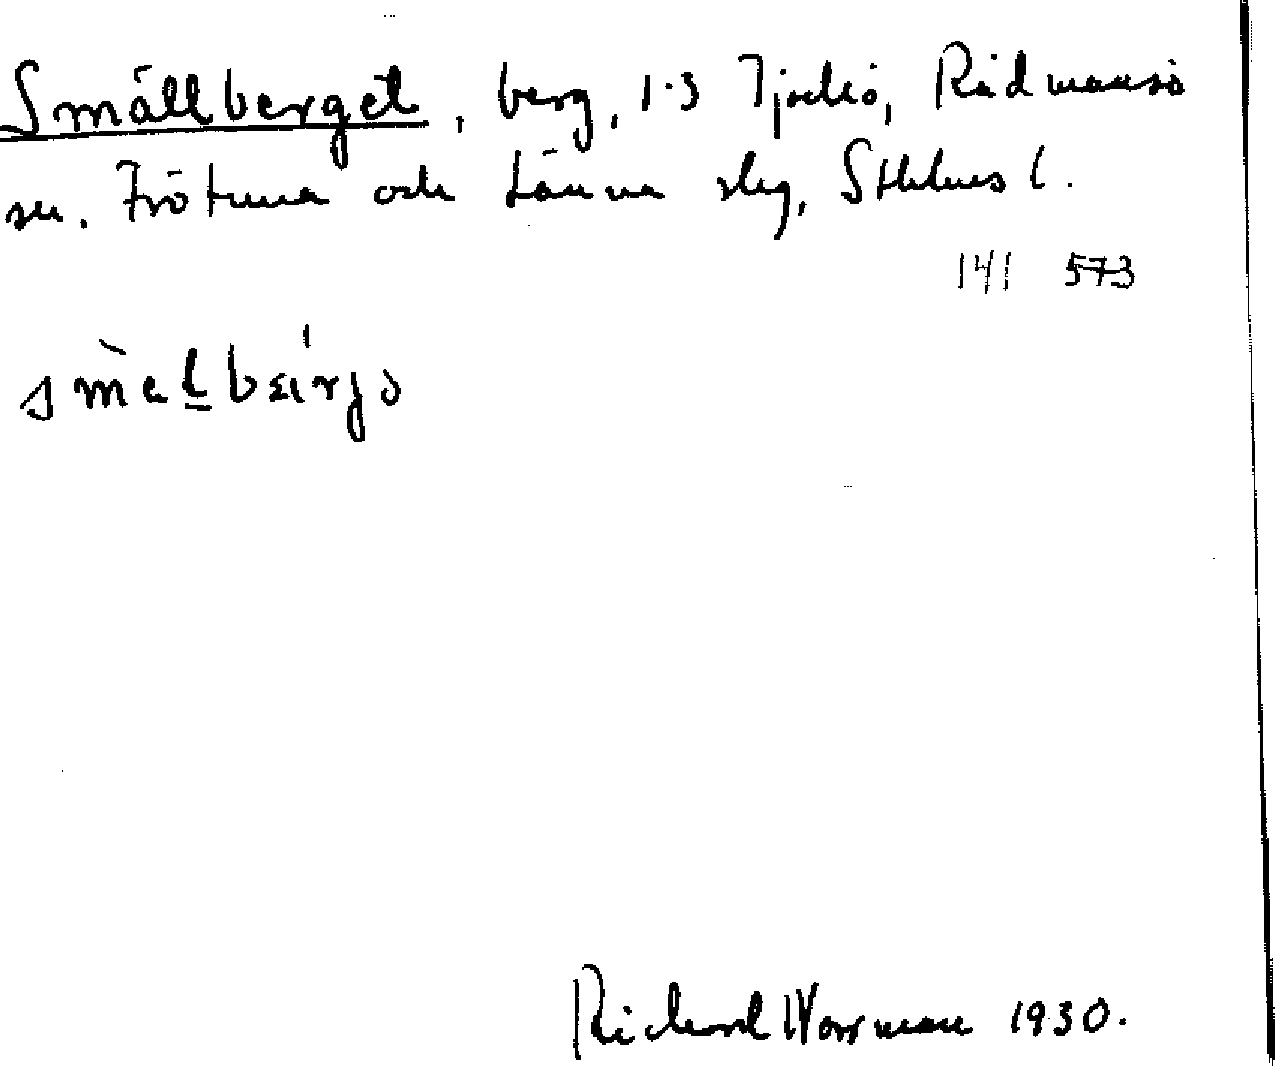 Smällberget, berg, 1-3 Tjockö, Rådmansö
sn. Frötuna och Länna slg, Sthlms l.
141 573
Richard Norrman 1930.